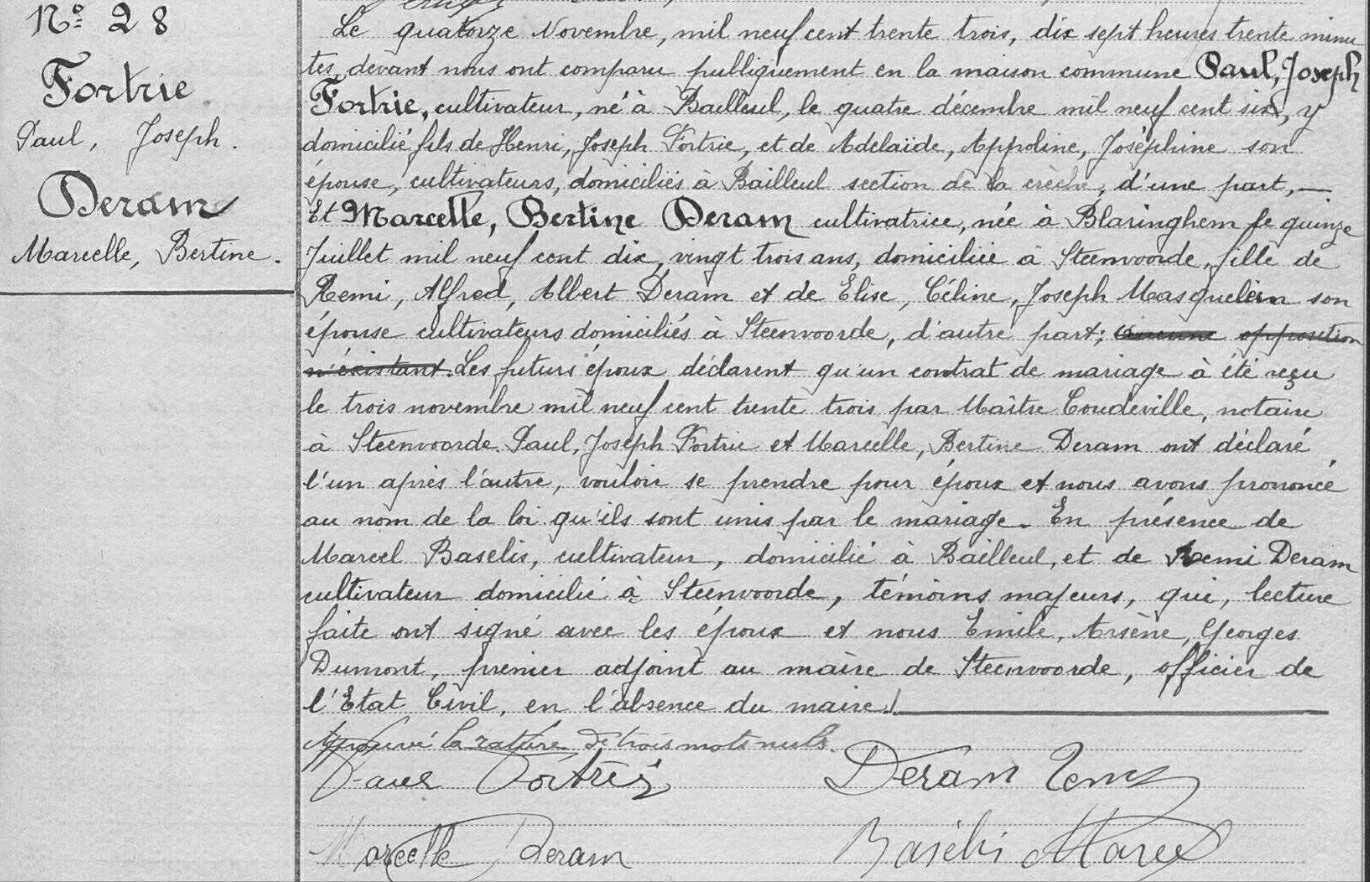 N° 28
Fortrie
Paul, Joseph.
Deram
Marcelle, Bertine.
Le quatorze Novembre, mil neuf cent trente trois, dix sept heures trente minu
tes, devant nous ont comparu publiquement en la maison commune Paul, Joseph
Fortrie, cultivateur, né à Bailleul, le quatre décembre mil neuf cent six, y
domicilié fils de Henri, Joseph Fortrie, et de Adelaïde, Appoline, Joséphine son
épouse, cultivateurs, domiciliés à Bailleul section de la crèche, d'une part, —
Et Marcelle, Bertine Deram cultivatrice, née à Blaringhem le quinze
Juillet mil neuf cent dix, vingt trois ans, domiciliée à Steenvoorde, fille de
Remi, Alfred, Albert Deram et de Elise, Céline, Joseph Masquelein son
épouse cultivateurs domiciliés à Steenvoorde, d'autre part; aucune opposition
n'éxistant. Les futurs époux déclarent qu'un contrat de mariage à été reçu
le trois novembre mil neuf cent trente trois par Maître Coudeville, notaire
à Steenvoorde. Paul, Joseph Fortrie et Marcelle, Bertine Deram ont déclaré
l'un après l'autre, vouloir se prendre pour époux et nous avons prononcé
au nom de la loi qu'ils sont unis par le mariage. En présence de
Marcel Baselis, cultivateur, domicilié à Bailleul, et de Remi Deram
cultivateur domicilié à Steenvoorde, témoins majeurs, qui, lecture
faite ont signé avec les époux et nous Emile, Arsène, Georges
Dumont, premier adjoint au maire de Steenvoorde, officier de
l'Etat Civil, en l'absence du maire.
Approuvé la rature de trois mots nuls.
Paul Fortrie
Deram Remi
Marcelle Deram
Basélis Marcel